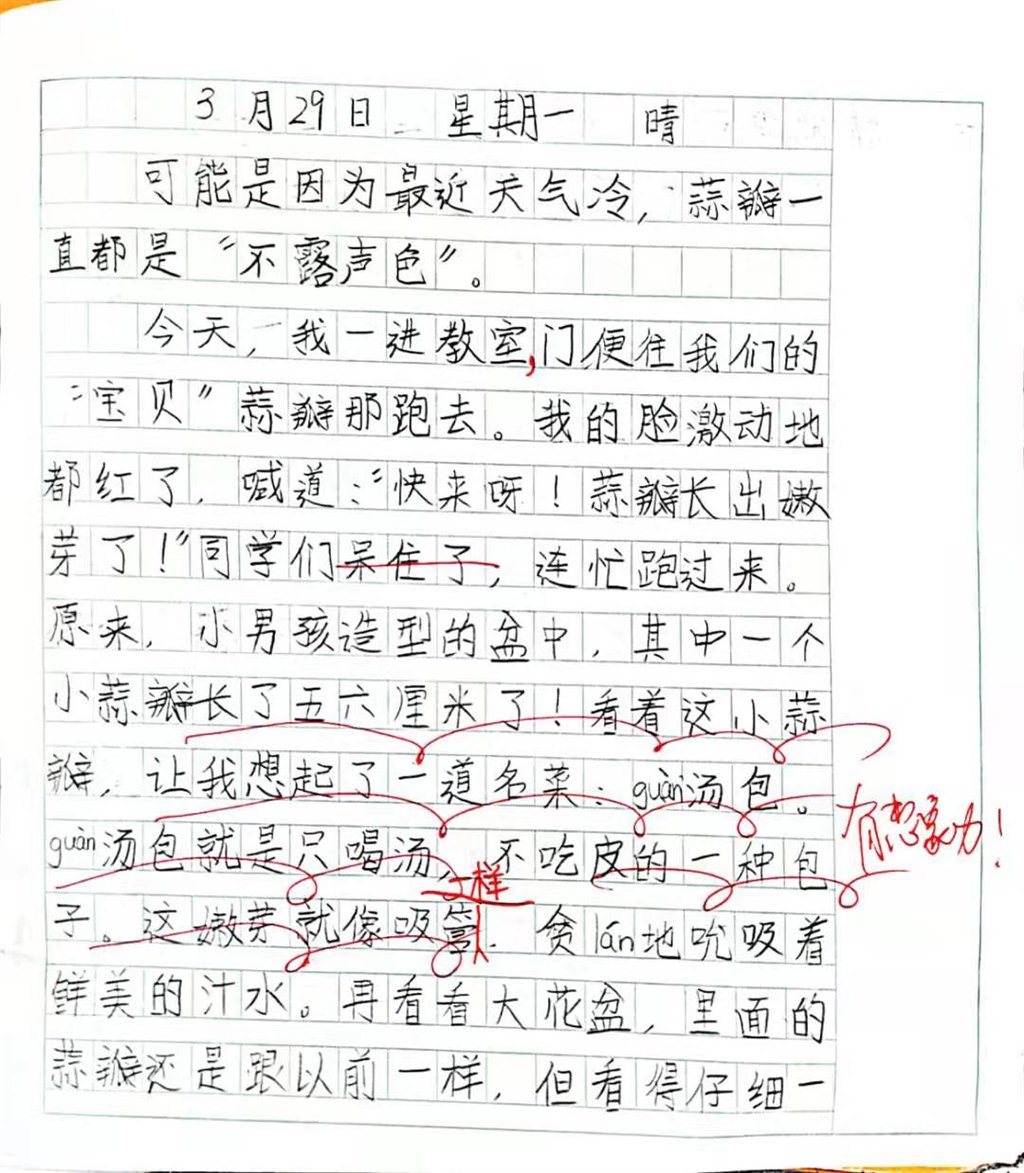 3月29日 星期一 晴
可能是因为最近天气冷,蒜瓣一
直都是“不露声色”。
今天,我一进教室,门便往我们的
“宝贝”蒜瓣那跑去。我的脸激动地
都红了,喊道:“快来呀!蒜瓣长出嫩
芽了!”同学们呆住了,连忙跑过来。
原来,小男孩造型的盆中,其中一个
小蒜瓣长了五六厘米了!看着这小蒜
瓣,让我想起了一道名菜:guàn汤包。
有想象力!
guàn汤包就是只喝汤,不吃皮的一种包
一样
子。这嫩芽就像吸管,贪lán地吮吸着
鲜美的汁水。再看看大花盆,里面的
蒜瓣还是跟以前一样,但看得仔细一